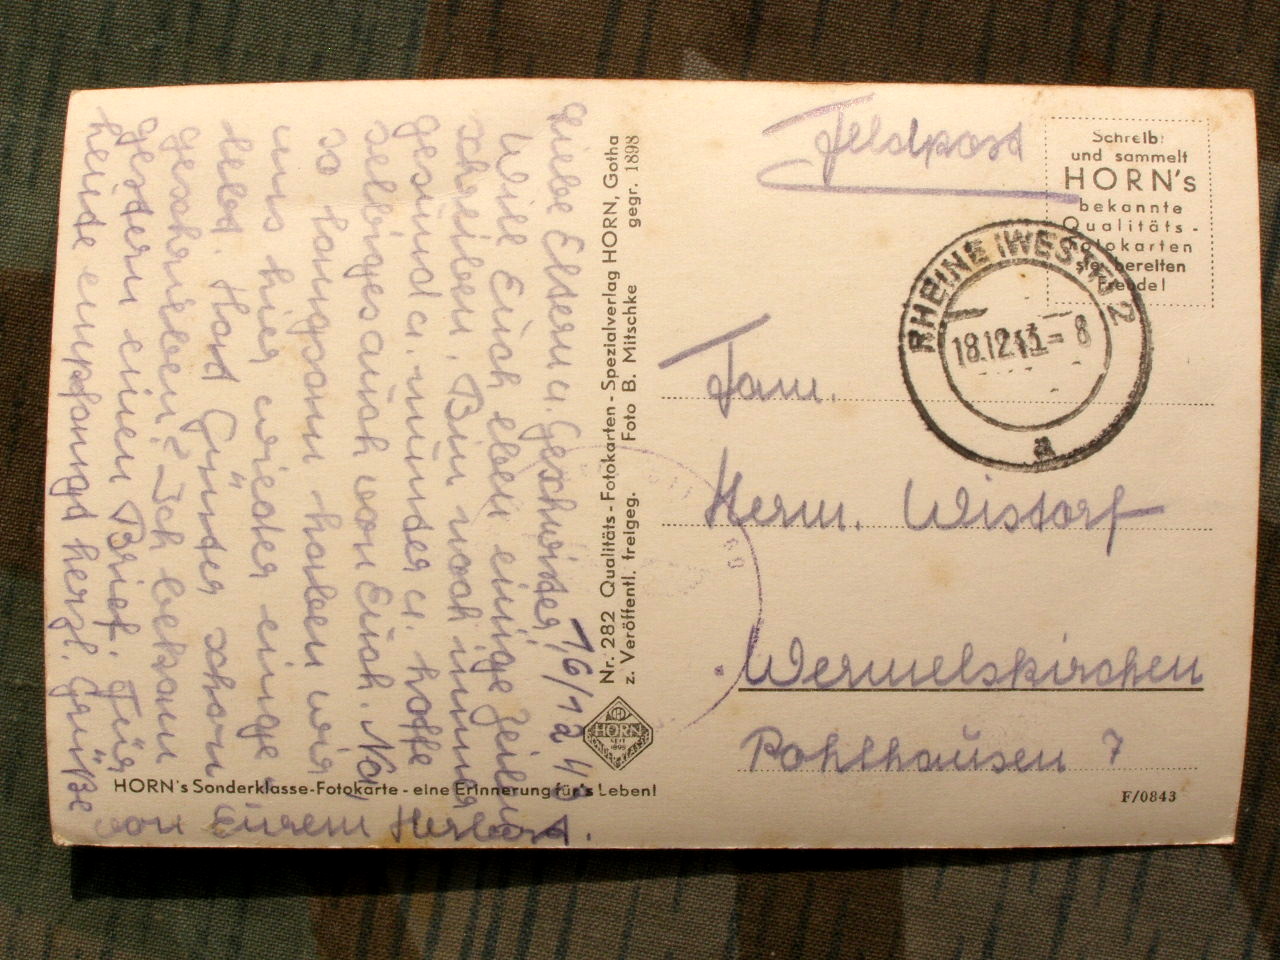 Feldpost
Schreibt
und sammelt
HORN's
bekannte
Qualitäts-
Fotokarten
sie bereiten
Freude!
RHEINE (WESTF) 2
18.12.43 - 8
a
Fam.
Herm. Wistorf
Wermelskirchen
Pohlhausen 7
F/0843
Nr. 282 Qualitäts-Fotokarten-Spezialverlag HORN, Gotha
z. Veröffentl. freigeg. Foto B. Mitschke gegr. 1898
HORN
SEIT
1898
HORN's Sonderklasse-Fotokarte - eine Erinnerung für's Leben!
16/12 43
Liebe Eltern u. Geschwister,
Will Euch eben einige Zeilen
schreiben. Bin noch immer
gesund u. munter u. hoffe
selbiges auch von Euch. Na
so langsam haben wir
uns hier wieder einge
lebt. Hat Günter schon
geschrieben? Ich bekam
gestern einen Brief. Für
heute empfangt herzl. Grüße
von Eurem Herbert.